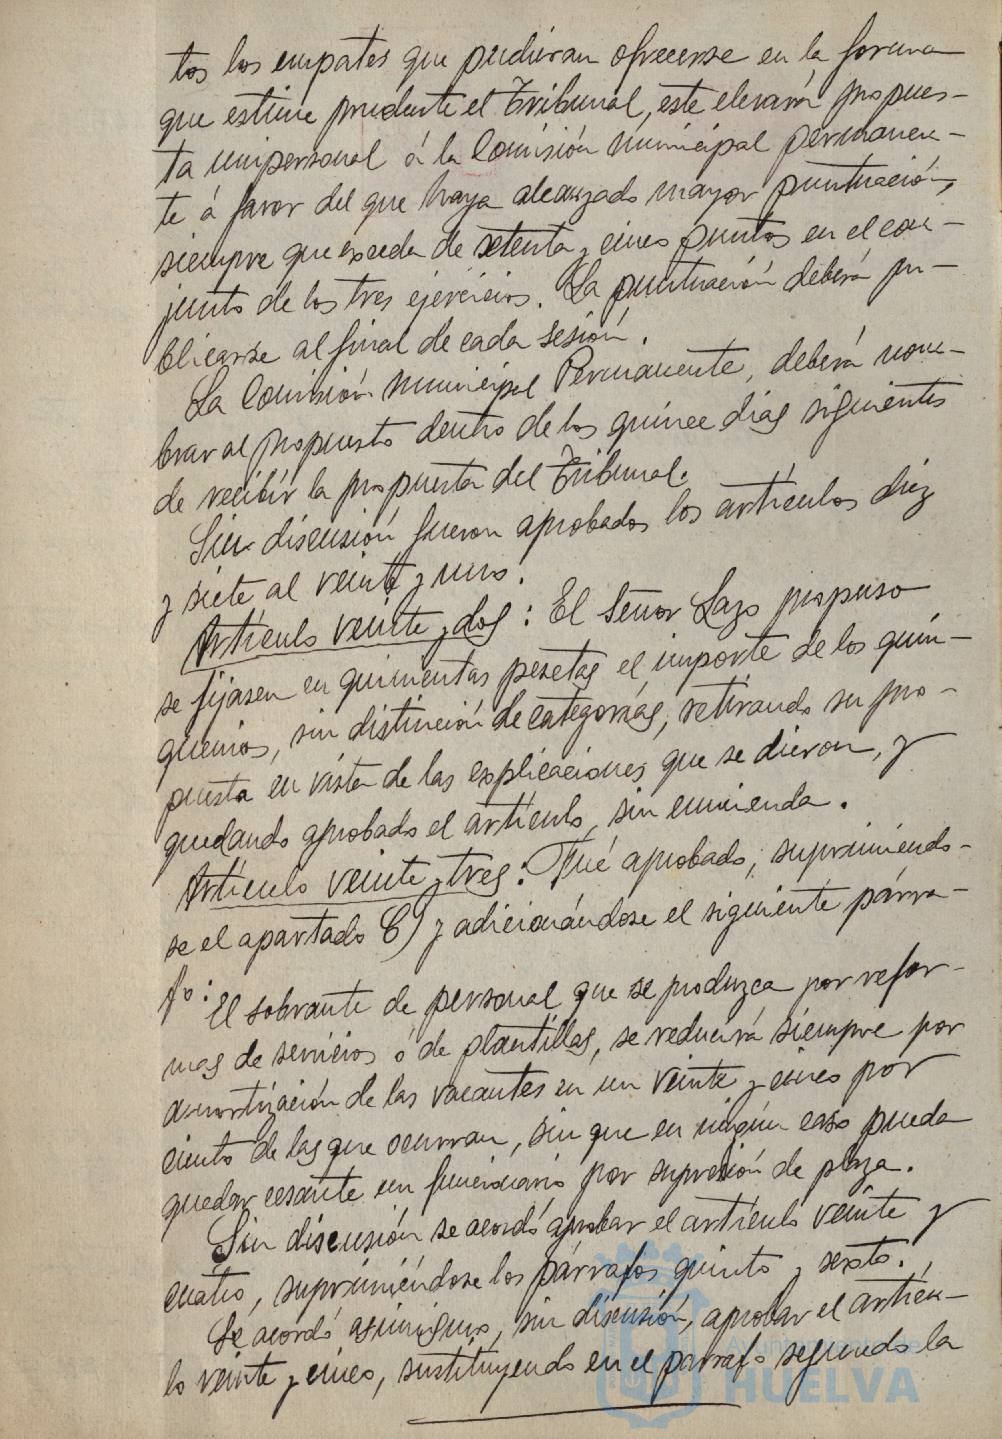 tos los empates que pudieran ofrecerse en la forma
que estime prudente el Tribunal, este elevará propues-
ta unipersonal á la Comisión Municipal permanen-
te á favor del que haya alcanzado mayor puntuación,
siempre que exceda de setenta y cinco puntos en el con-
junto de los tres ejercicios. La puntuación deberá pu-
blicarse al final de cada sesión.
La Comisión Municipal Permanente, deberá nom-
brar al propuesto dentro de los quince dias siguientes
de recibir la propuesta del Tribunal.
Sin discusión fueron aprobados los artículos diez
y siete al veinte y uno.
Artículo veinte y dos: El Señor Lazo propuso
se fijasen en quinientas pesetas el importe de los quin-
quenios, sin distinción de categorías, retirando su pro-
puesta en vista de las explicaciones que se dieron, y
quedando aprobado el artículo, sin enmienda.
Artículo veinte y tres: Fué aprobado, suprimiendo-
se el apartado C) y adicionándose el siguiente párra-
fo:
El sobrante de personal que se produzca por refor-
mas de servicios ó de plantillas, se reducirá siempre por
amortización de las vacantes en un veinte y cinco por
ciento de las que ocurran, sin que en ningún caso pueda
quedar cesante un funcionario por supresión de plaza.
Sin discusión se acordó aprobar el artículo veinte y
cuatro, suprimiéndose los párrafos quinto y sexto.
Se acordó asimismo, sin discusión, aprobar el artícu-
lo veinte y cinco, sustituyendo en el párrafo segundo la
Ayuntamiento de
HUELVA